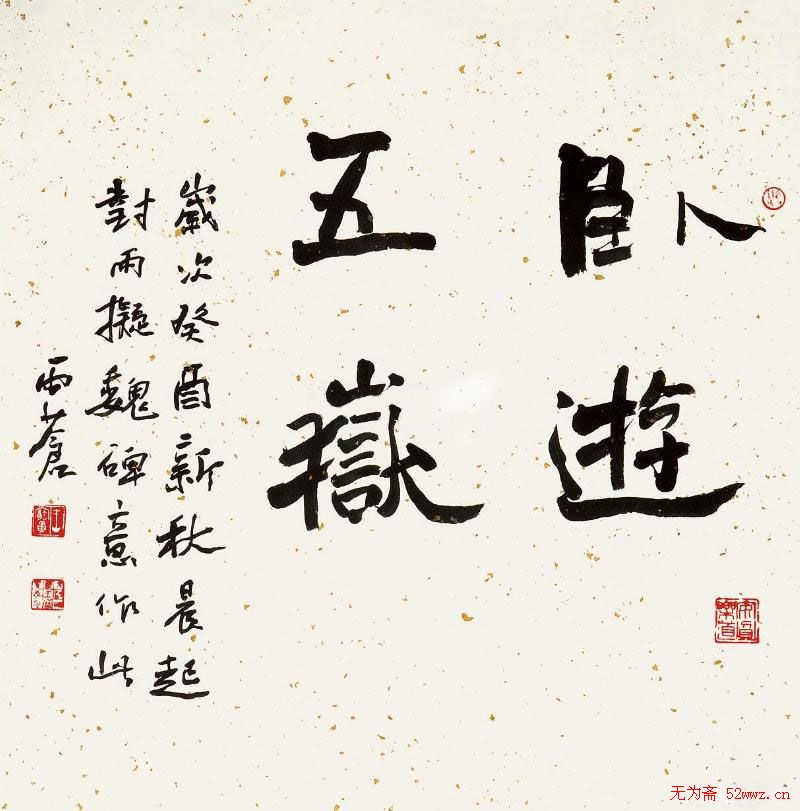 卧遊
五嶽
歲次癸酉新秋晨起
對雨擬魏碑意作此
雨蒼
安貧
樂道
无为斋 52wwz.cn